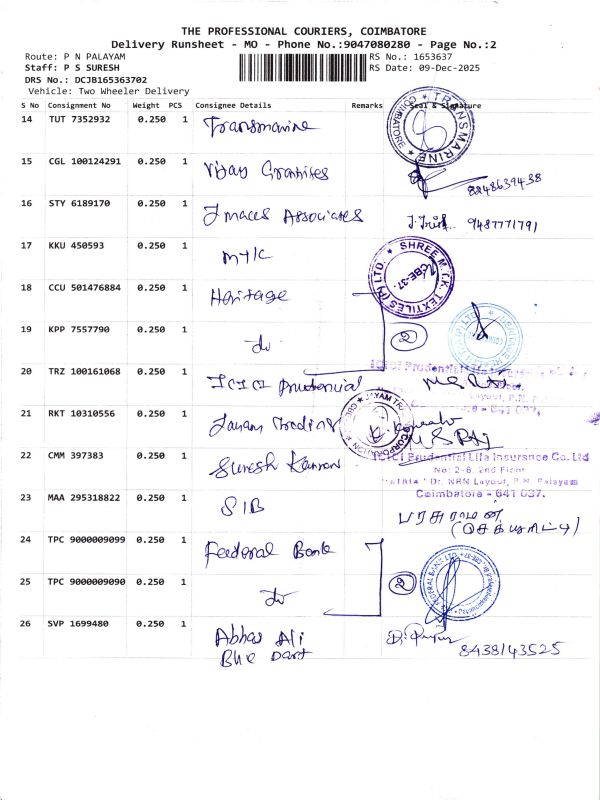 THE PROFESSIONAL COURIERS, COIMBATORE
Delivery Runsheet - MO - Phone No.:9047080280 - Page No.:2
Route: P N PALAYAM
RS No.: 1653637
Staff: P S SURESH
RS Date: 09-Dec-2025
DRS No.: DCJB165363702
Vehicle: Two Wheeler Delivery
S No Consignment No Weight PCS Consignee Details Remarks Seal & Signature
14 TUT 7352932 0.250 1 Transmarine
TRANSMARINE COIMBATORE
15 CGL 100124291 0.250 1 Vijay Granites
8248639438
16 STY 6189170 0.250 1 Imaces Associates 9487771791
17 KKU 450593 0.250 1 MTK
SHREE M.T.K. TEXTILES (P) LTD. CBE-37.
18 CCU 501476884 0.250 1 Heritage
19 KPP 7557790 0.250 1 do 2
20 TRZ 100161068 0.250 1 ICICI Prudencial
ICICI Prudential Life
Layout, P.N.
- 641 037.
21 RKT 10310556 0.250 1 Jayam Trading
JAYAM CORPORATION
22 CMM 397383 0.250 1 Suresh Kannan
ICICI Prudential Life Insurance Co. Ltd
No: 2-6, 2nd Floor
Dr. NRN Layout, P.N. Palayam
Coimbatore - 641 037.
23 MAA 295318822 0.250 1 SIB
பரசுராமன்
24 TPC 9000009099 0.250 1 Feederal Bank
25 TPC 9000009090 0.250 1 do 2
FEDERAL BANK LTD.
26 SVP 1699480 0.250 1 Abbas Ali
Blue Dart
8438143525